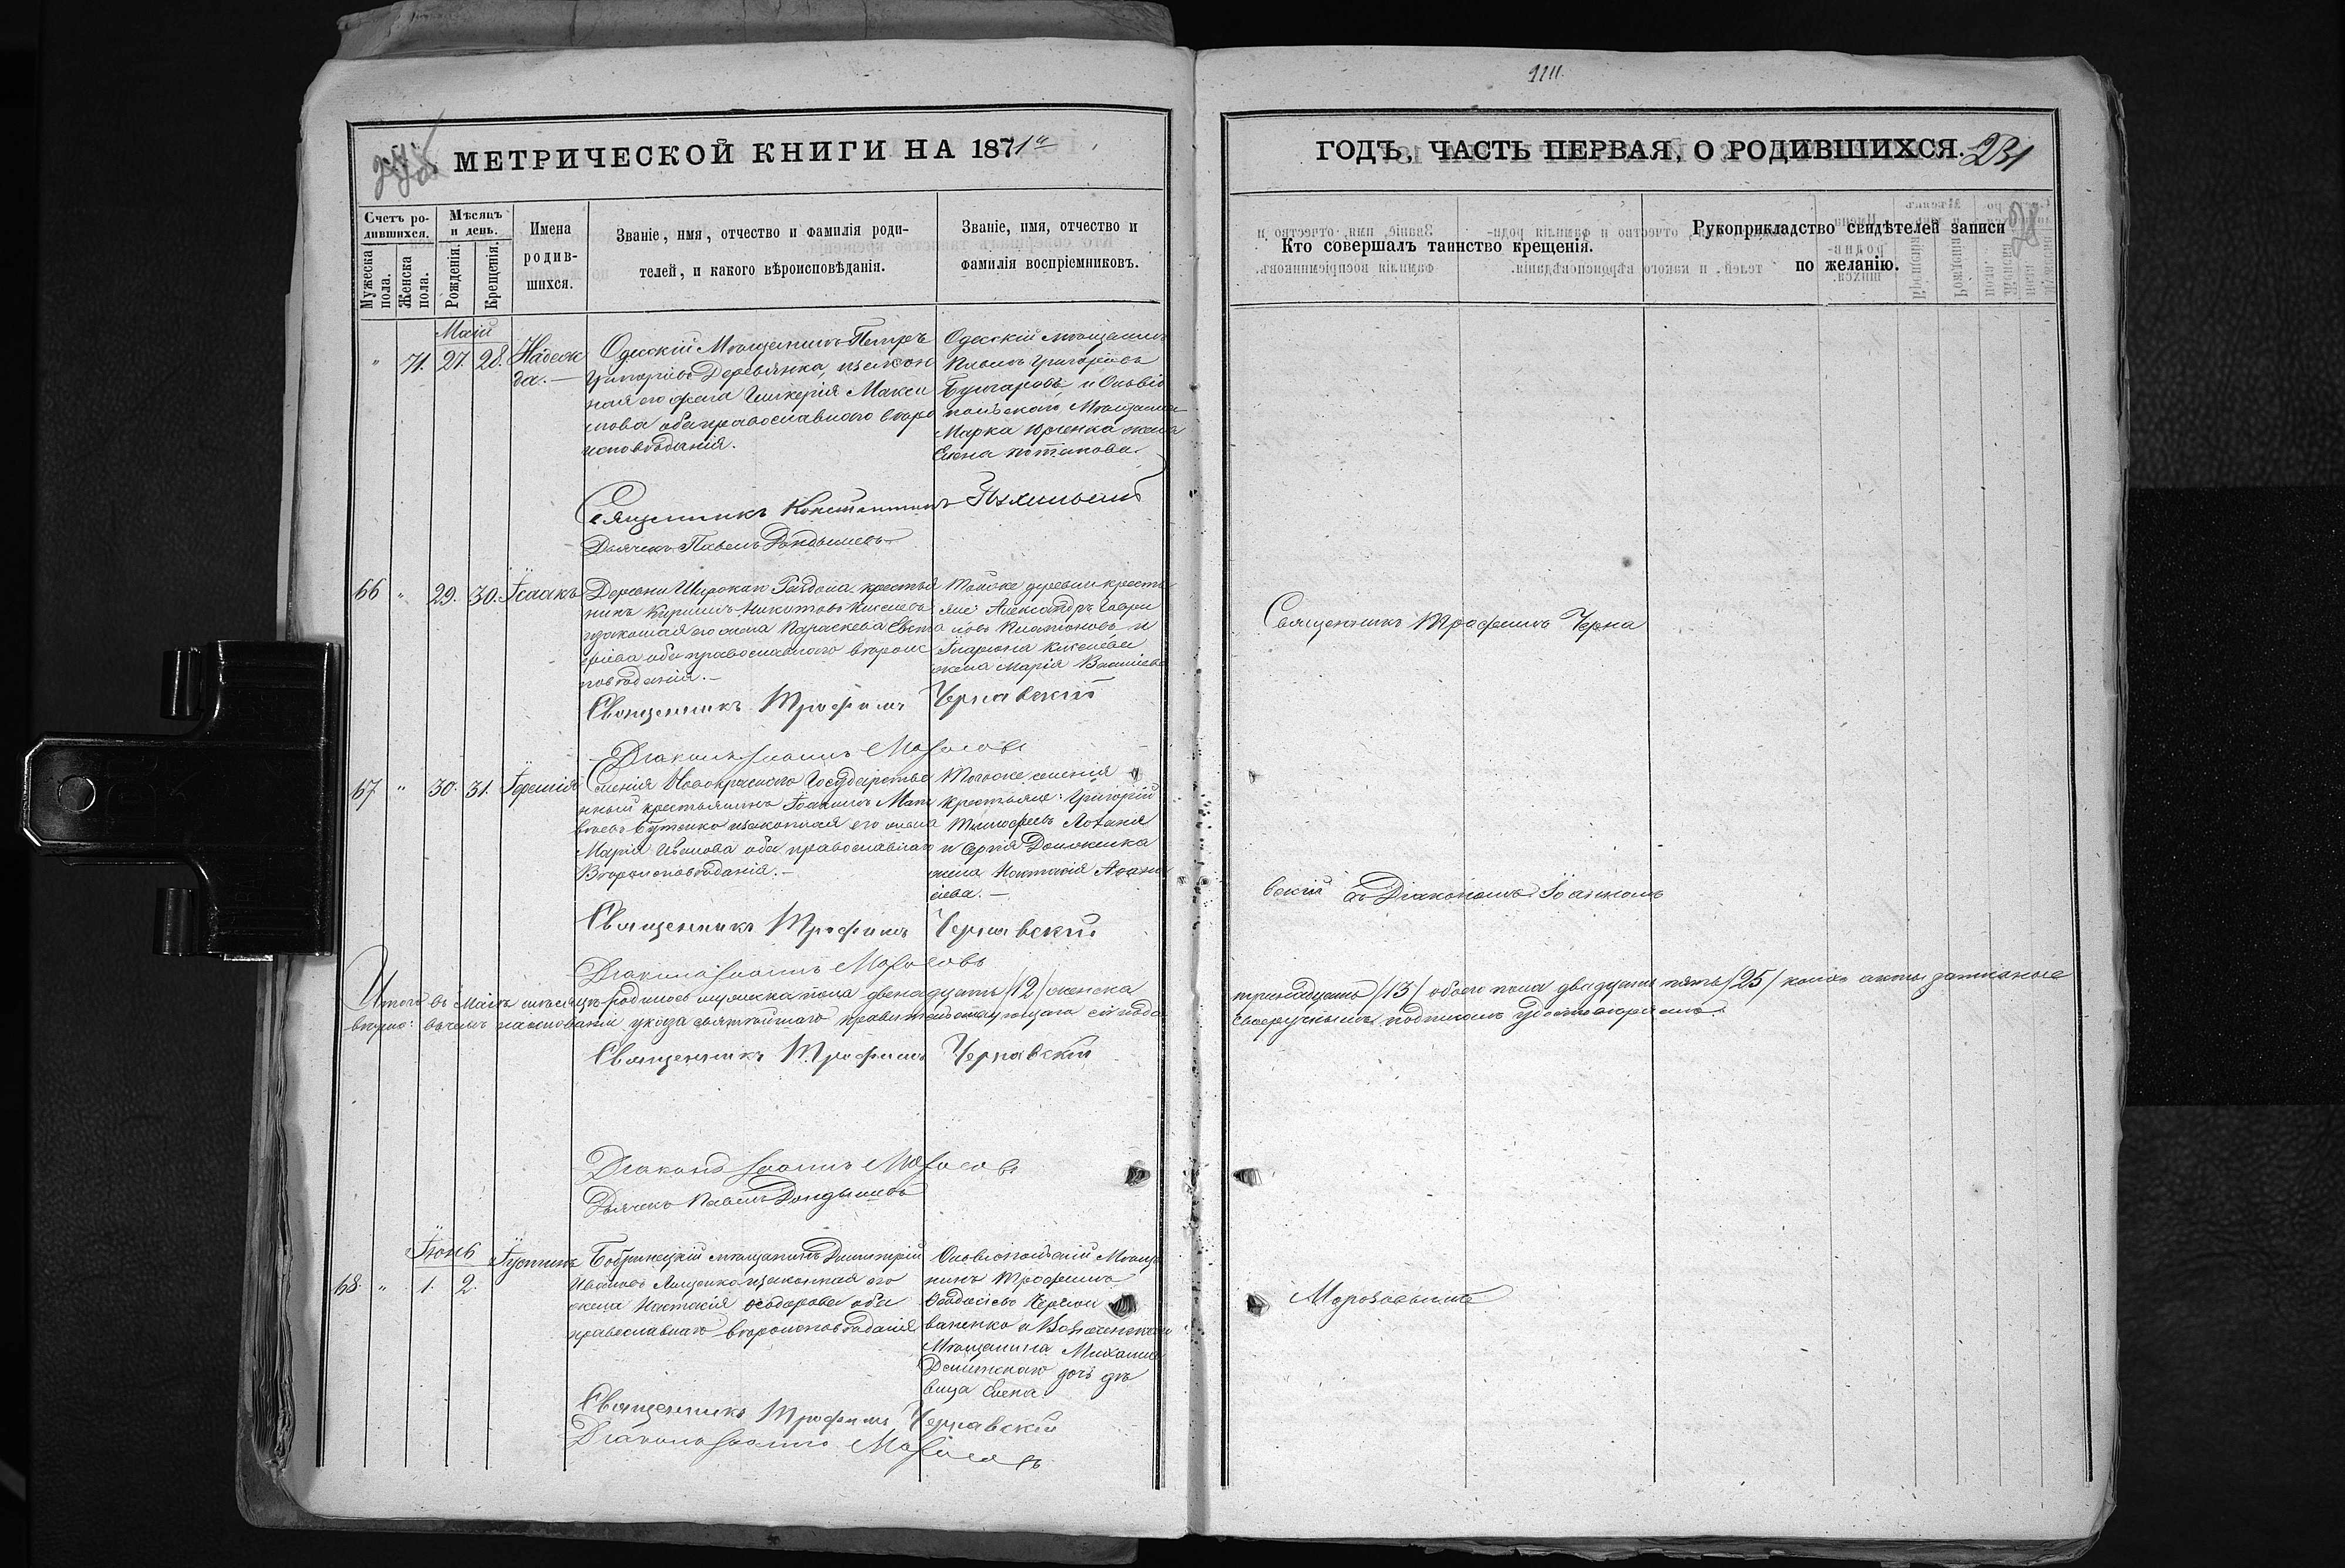 1111.
МЕТРИЧЕСКОЙ КНИГИ НА 1871й
ГОДЪ, ЧАСТЬ ПЕРВАЯ, О РОДИВШИХСЯ.
231
Счетъ ро-
дившихся.
Мужеска пола.
Женска пола.
Мѣсяцъ
и день.
Рожденія.
Крещенія.
Имена
родив-
шихся.
Званіе, имя, отчество и фамилія роди-
телей, и какого вѣроисповѣданія.
Званіе, имя, отчество и
фамилія воспріемниковъ.
Кто совершалъ таинство крещенія.
Рукоприкладство свидѣтелей записи
по желанію.
Маій
" 71. 27. 28. Надеж
да.
Одесскій Мѣщанинъ Петръ
Григоріевъ Деревянка, и закон
ная его жена Гликерія Макси
мова оба православнаго вѣро
исповѣданія.
Одесскій мѣщанинъ
Павелъ Григоріевъ
и Овидіо
польскаго Мѣщанина
Марка Юрченка жена
Елена
Священникъ Константинъ
Дьячекъ Павелъ
66 " 29. 30. Ісаакъ
Деревни Широкаго крестья
нинъ Кириллъ Никитовъ Киселевъ
и законная его жена Параскева
оба православнаго вѣроис
повѣданія.
Тойже деревни кресть
яне: Александръ Гаври
ловъ Платоновъ и
Иларіона Киселева
жена Марія Василіева
Священникъ Трофимъ Чернавскій
Діаконъ Іоаннъ Морозовъ
Священникъ Трофимъ Черна
67. " 30. 31. Іеремія
Селенія Новокраснаго Государстве
нный крестьянинъ Іоаннъ Мат
вѣевъ Бутенко и законная его жена
Марія Иванова оба православнаго
Вѣроисповѣданія.
Тогоже селенія
крестьяне: Григорій
Тимофеевъ
и Сергія
жена Настасія Афана
сіева.
Священникъ Трофимъ Чернавскій
Діаконъ Іоаннъ Морозовъ
вскій съ Діакономъ Іоанномъ
Итого въ Маіѣ мѣсяцѣ родилось мужеска пола двенадцать /12/ женска
тринадцать /13/ обоего пола двадцать пять /25/ коихъ акты записаны
вѣрно: въ чемъ на основаніи указа святѣйшаго правительствующаго синода
своеручнымъ подписомъ удостовѣряемъ.
Священникъ Трофимъ Чернавскій
Діаконъ Іоаннъ Морозовъ
Дьячекъ Павелъ
Іюнь
68. " 1. 2. Іустинъ
Бобринецкій мѣщанинъ Димитрій
Ивановъ и законная его
жена Настасія Ѳеодорова оба
православнаго вѣроисповѣданія
Овидіопольскій Мѣща
нинъ Трофимъ
Ѳеодосіевъ
и Вознесенскаго
Мѣщанина Михаила
дочь дѣ
вица Елена.
Священникъ Трофимъ Чернавскій
Діаконъ Іоаннъ Морозовъ
Морозовымъ